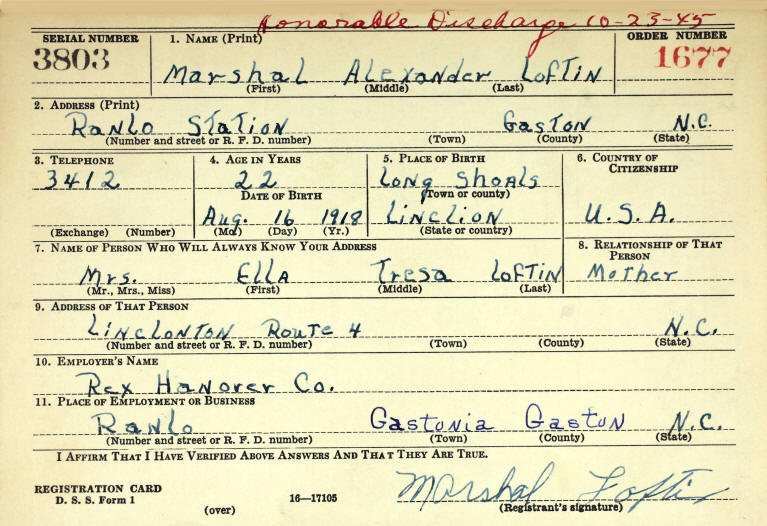 Honorable Discharge 10-23-45
SERIAL NUMBER 1. NAME (Print) ORDER NUMBER
3803 Marshal Alexander Loftin 1677
(First) (Middle) (Last)
2. ADDRESS (Print)
Ranlo Station Gaston N.C.
(Number and street or R. F. D. number) (Town) (County) (State)
3. TELEPHONE 4. AGE IN YEARS 5. PLACE OF BIRTH 6. COUNTRY OF CITIZENSHIP
3412 22 Long Shoals
DATE OF BIRTH (Town or county)
Aug. 16 1918 Linclion U.S.A.
(Exchange) (Number) (Mo.) (Day) (Yr.) (State or country)
7. NAME OF PERSON WHO WILL ALWAYS KNOW YOUR ADDRESS 8. RELATIONSHIP OF THAT PERSON
Mrs. Ella Tresa Loftin Mother
(Mr., Mrs., Miss) (First) (Middle) (Last)
9. ADDRESS OF THAT PERSON
Linclonton Route 4 N.C.
(Number and street or R. F. D. number) (Town) (County) (State)
10. EMPLOYER'S NAME
Rex Hanover Co.
11. PLACE OF EMPLOYMENT OR BUSINESS
Ranlo Gastonia Gaston N.C.
(Number and street or R. F. D. number) (Town) (County) (State)
I AFFIRM THAT I HAVE VERIFIED ABOVE ANSWERS AND THAT THEY ARE TRUE.
REGISTRATION CARD
D. S. S. Form 1 16—17105 Marshal Loftin
(over) (Registrant's signature)